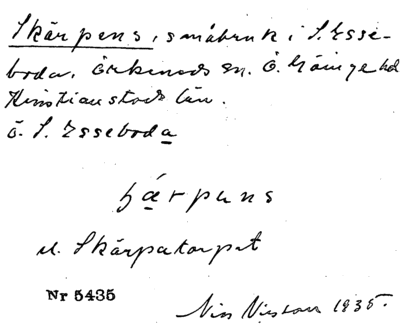 Skärpens, småbruk i S. Esse-
boda, Örkeneds sn. Ö. Göinge hd
Kristianstads län.
ö. S. Esseboda
ʃärpens
el. Skärpatorpet
Nr 5435
1935.